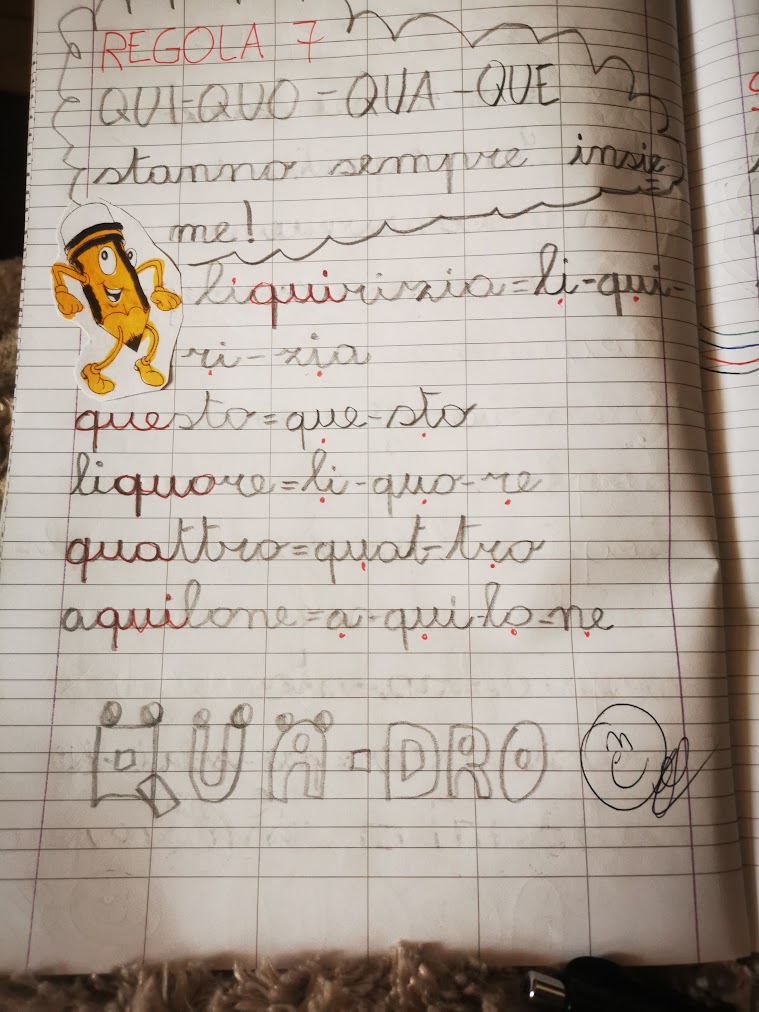 REGOLA 7
QUI-QUO-QUA-QUE
stanno sempre insie=
me!
liquirizia=li-qui-
ri-zia
questo=que-sto
liquore=li-quo-re
quattro=quat-tro
aquilone=a-qui-lo-ne
QUA-DRO